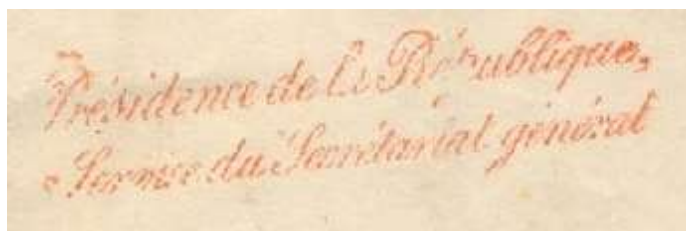 Présidence de la République,
Service du Secrétariat général